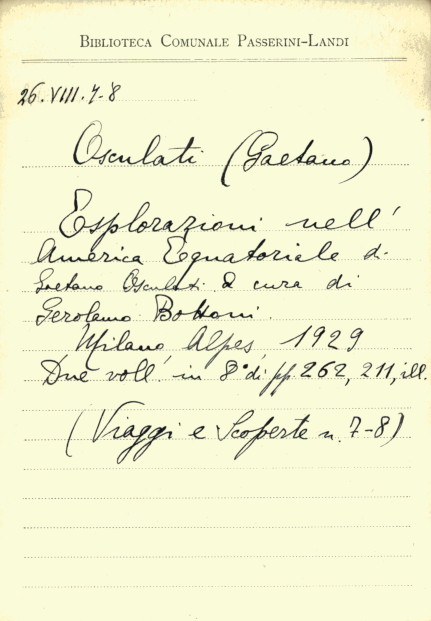 BIBLIOTECA COMUNALE PASSERINI-LANDI
26.VIII.7-8
Osculati (Gaetano)
Esplorazioni nell'
America Equatoriale di
Gaetano Osculati a cura di
Gerolamo Bottoni.
Milano Alpes, 1929
Due voll. in 8° di pp 262, 211, ill.
(Viaggi e Scoperte n. 7-8)